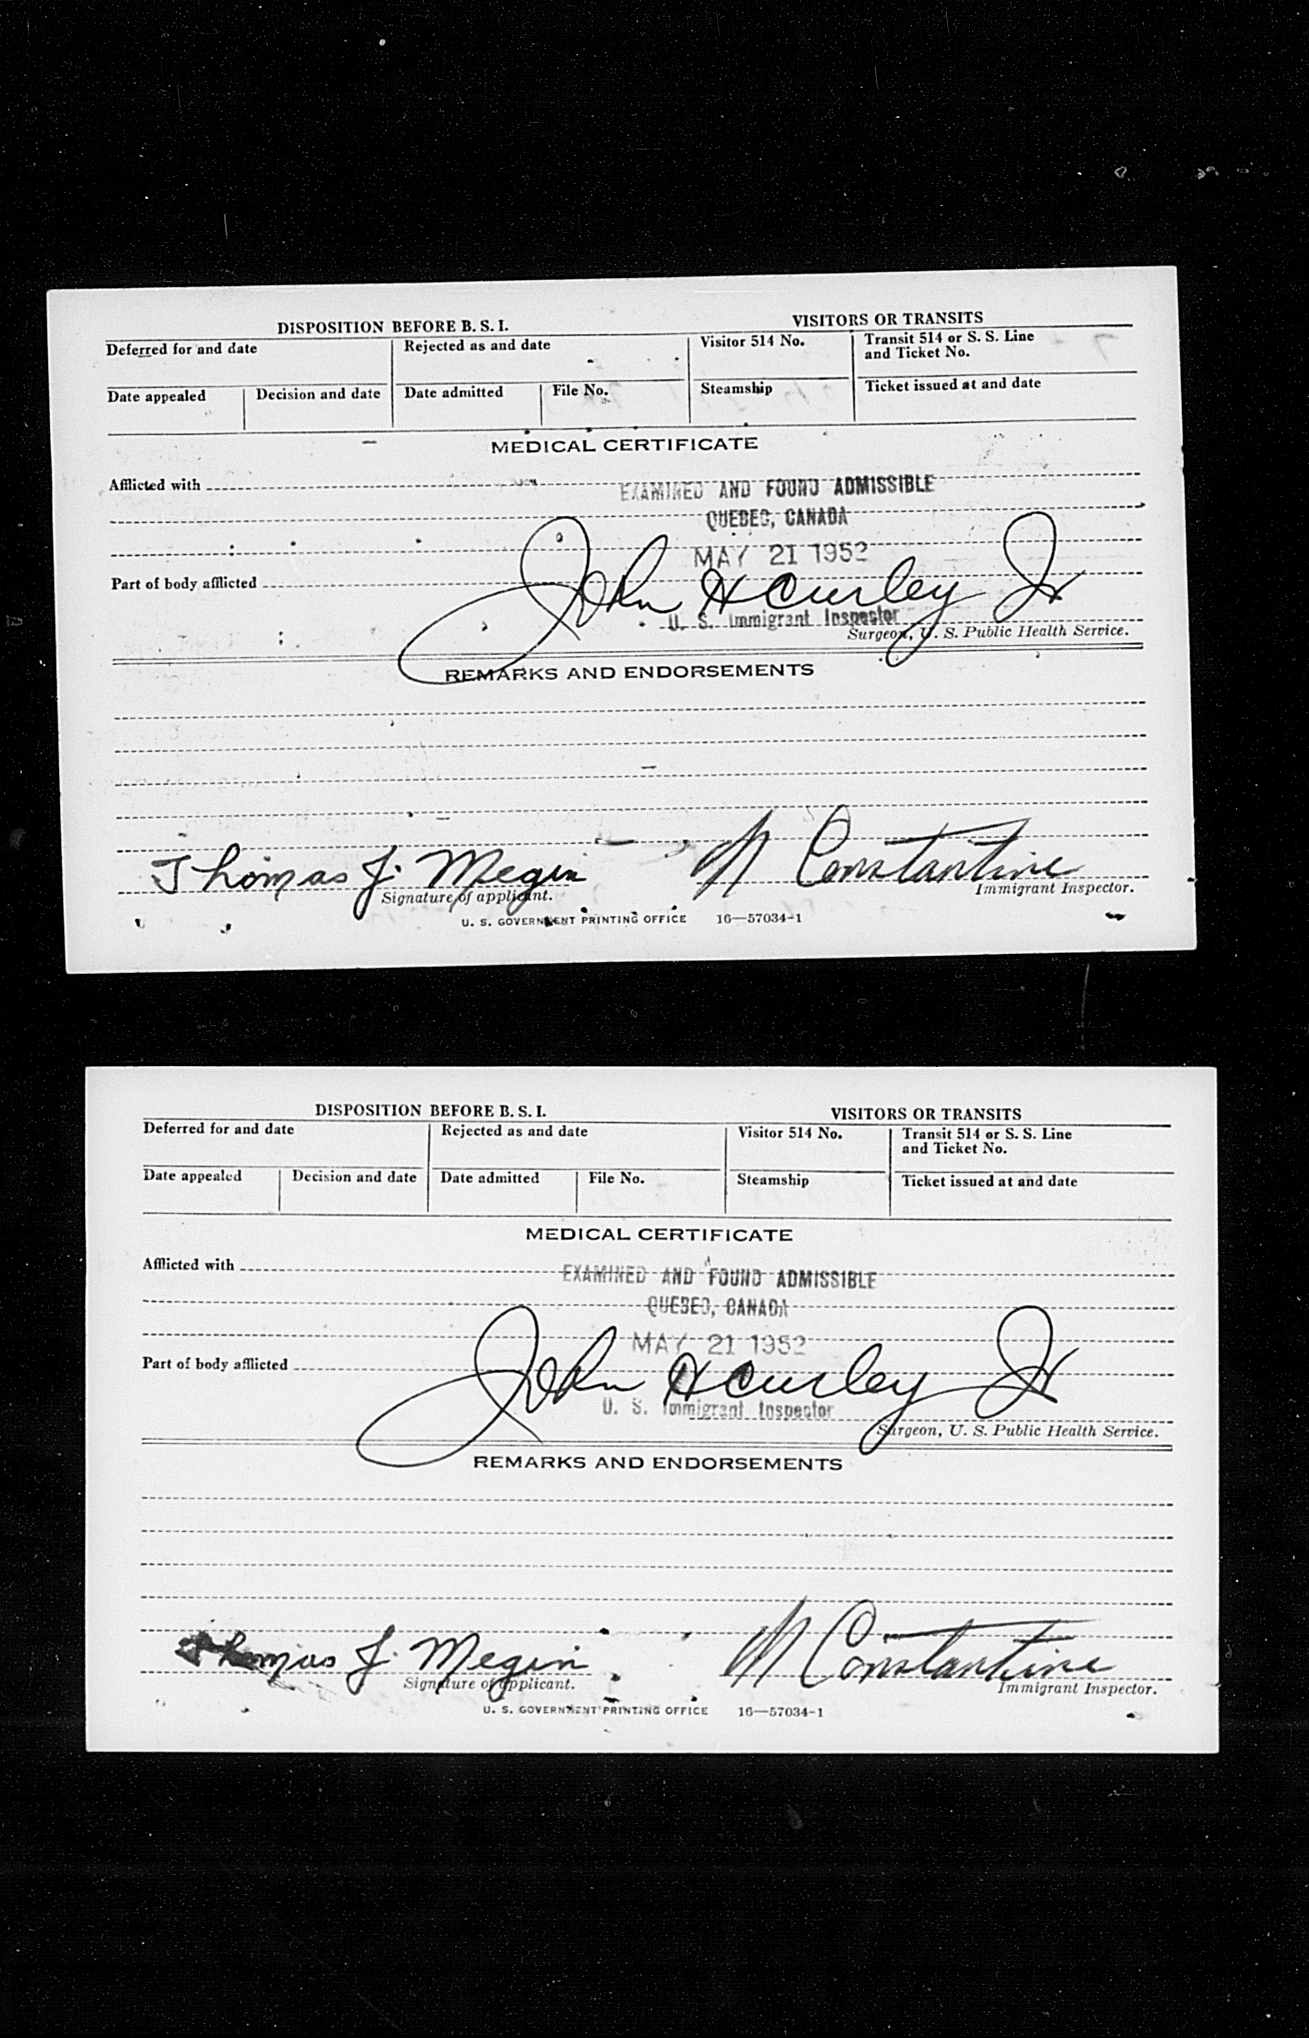 DISPOSITION BEFORE B. S. I. VISITORS OR TRANSITS
Deferred for and date Rejected as and date Visitor 514 No. Transit 514 or S. S. Line
and Ticket No.
Date appealed Decision and date Date admitted File No. Steamship Ticket issued at and date
MEDICAL CERTIFICATE
Afflicted with EXAMINED AND FOUND ADMISSIBLE
QUEBEC, CANADA
MAY 21 1952
Part of body afflicted John H Curley Jr
U. S. Immigrant Inspector
Surgeon, U. S. Public Health Service.
REMARKS AND ENDORSEMENTS
Thomas J. Megin M Constantine
Signature of applicant. Immigrant Inspector.
U. S. GOVERNMENT PRINTING OFFICE 16—57034-1
DISPOSITION BEFORE B. S. I. VISITORS OR TRANSITS
Deferred for and date Rejected as and date Visitor 514 No. Transit 514 or S. S. Line
and Ticket No.
Date appealed Decision and date Date admitted File No. Steamship Ticket issued at and date
MEDICAL CERTIFICATE
Afflicted with EXAMINED AND FOUND ADMISSIBLE
QUEBEC, CANADA
MAY 21 1952
Part of body afflicted John H Curley Jr
U. S. Immigrant Inspector
Surgeon, U. S. Public Health Service.
REMARKS AND ENDORSEMENTS
Thomas J. Megin M Constantine
Signature of applicant. Immigrant Inspector.
U. S. GOVERNMENT PRINTING OFFICE 16—57034-1